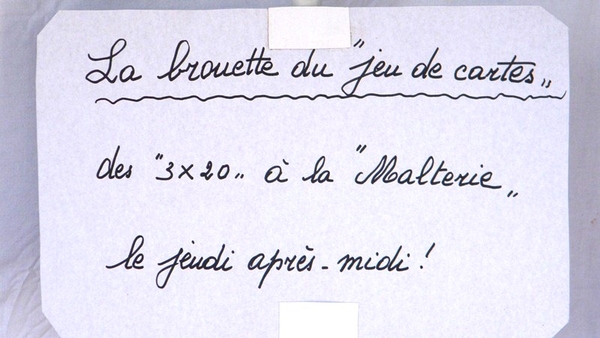 La brouette du "jeu de cartes"
des "3x20" à la "Malterie"
le jeudi après-midi !